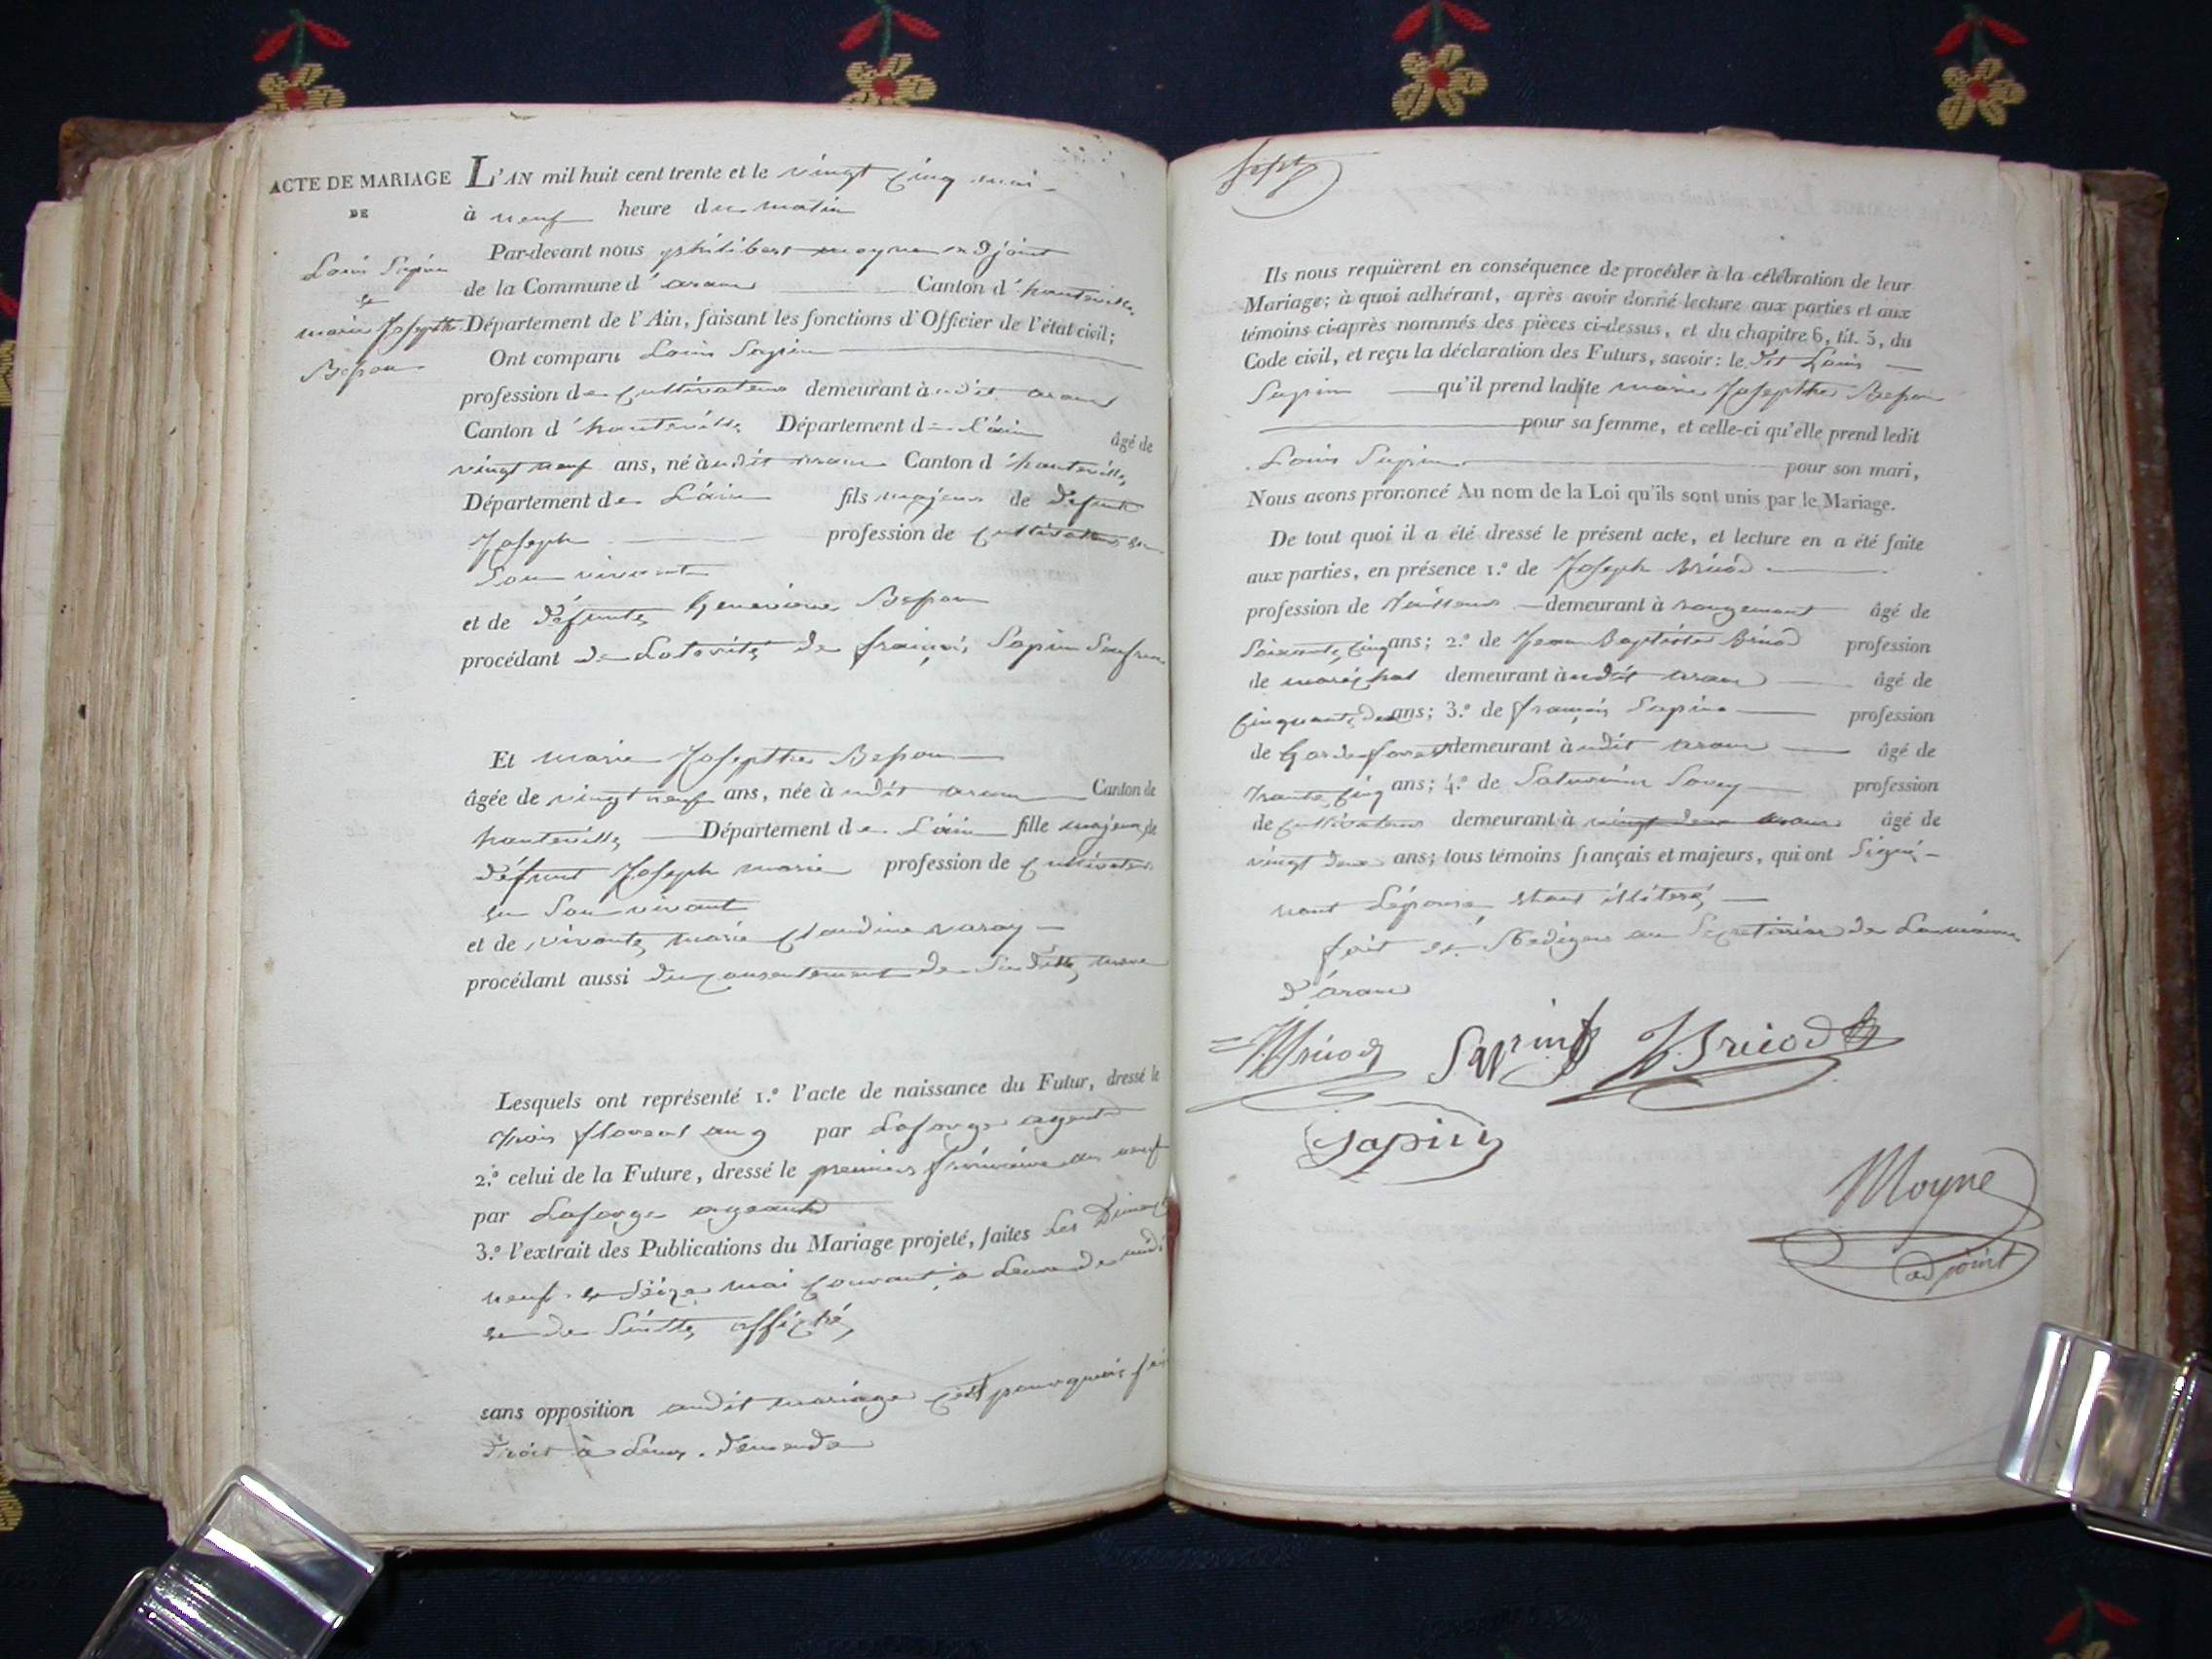 ACTE DE MARIAGE
DE
Louis Sapin
et
marie Josephte
Besson
L'AN mil huit cent trente et le vingt cinq mai
à neuf heure du matin
Par-devant nous philibert moyne adjoint
de la Commune d'aranc Canton d'hauteville
Département de l'Ain, faisant les fonctions d'Officier de l'état civil;
Ont comparu Louis Sapin
profession de cultivateur demeurant à udit aranc
Canton d'hauteville Département de L'ain âgé de
vingt neuf ans, né à udit aranc Canton d'hauteville
Département de L'ain fils majeur de défunt
Joseph profession de cultivateur en
Son vivant
et de défunte Genevieve Besson
procédant de Lotorité de françois Sapin Son frere
Et marie Josephte Besson
âgée de vingt neuf ans, née à udit aranc Canton de
hauteville Département de L'ain fille majeure de
défunt Joseph marie profession de cultivateur
en Son vivant
et de vivante marie Claudine Savey
procédant aussi du consentement de Sadite mere
Lesquels ont représenté 1.º l'acte de naissance du Futur, dressé le
trois floreal an 9 par Laforge agent
2.º celui de la Future, dressé le premier frimaire an neuf
par Laforge ageant
3.º l'extrait des Publications du Mariage projeté, faites les Dimanc
neuf et Séize mai courant, a Leure de midi
et de Suitte affiché
sans opposition audit mariage c'est pourquoi fai
droit à Leur demande
sept
Ils nous requièrent en conséquence de procéder à la célébration de leur
Mariage; à quoi adhérant, après avoir donné lecture aux parties et aux
témoins ci-après nommés des pièces ci-dessus, et du chapitre 6, tit. 5, du
Code civil, et reçu la déclaration des Futurs, savoir: le dit Louis
Sapin qu'il prend ladite marie Josephte Besson
pour sa femme, et celle-ci qu'elle prend ledit
Louis Sapin pour son mari,
Nous avons prononcé Au nom de la Loi qu'ils sont unis par le Mariage.
De tout quoi il a été dressé le présent acte, et lecture en a été faite
aux parties, en présence 1.º de Joseph Bricod
profession de demeurant à rougemont âgé de
Soixante cinq ans; 2.º de Jean Baptiste Bricod profession
de maréchal demeurant à udit aranc âgé de
cinquante deux ans; 3.º de françois Sapin profession
de Garde forest demeurant à udit aranc âgé de
trante cinq ans; 4.º de Saturnin Savey profession
de cultivateur demeurant à vingt deux aranc âgé de
vingt deux ans; tous témoins français et majeurs, qui ont Signé
nont Lépouse etant illiteré
fait et Redigée au Secretariat de La mairie
d'aranc
Bricod Sapin J Bricod
Sapin
Moyne
adjoint